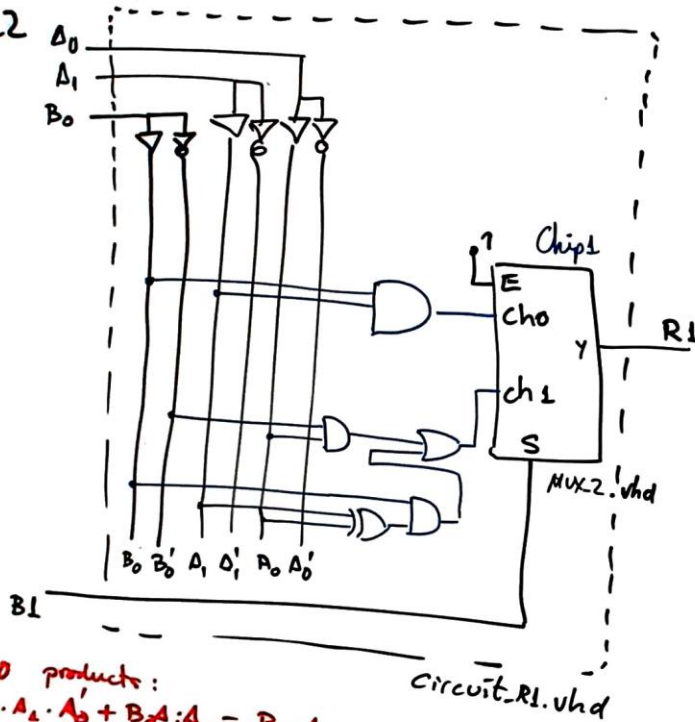 A0
A1
B0
1
Chip1
E
Ch0
Y
R1
ch1
S
MUX_2.vhd
B0 B0' A1 A1' A0 A0'
B1
Circuit_R1.vhd
products: